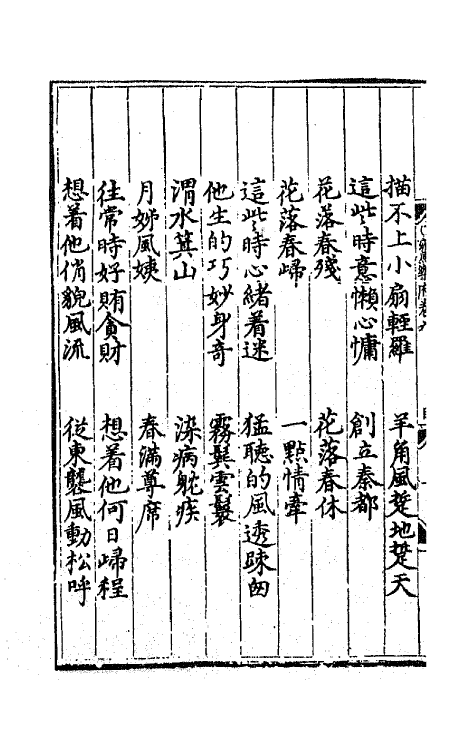 描不上小扇輕羅　羊角風楚地楚天
這些時意懶心慵　創立秦都
花落春殘　花落春休
花落春歸　一點情牽
這些時心緒着迷　猛聽的風透疎
他生的巧妙身奇　霧鬢雲鬟
渭水箕山　染病躭疾
月姊風姨　春滿尊席
往常時好賄貪財　想着他何日歸程
想着他俏貌風流　從東襲風動松呼